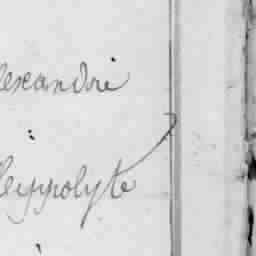 lexandre
heyppolyte